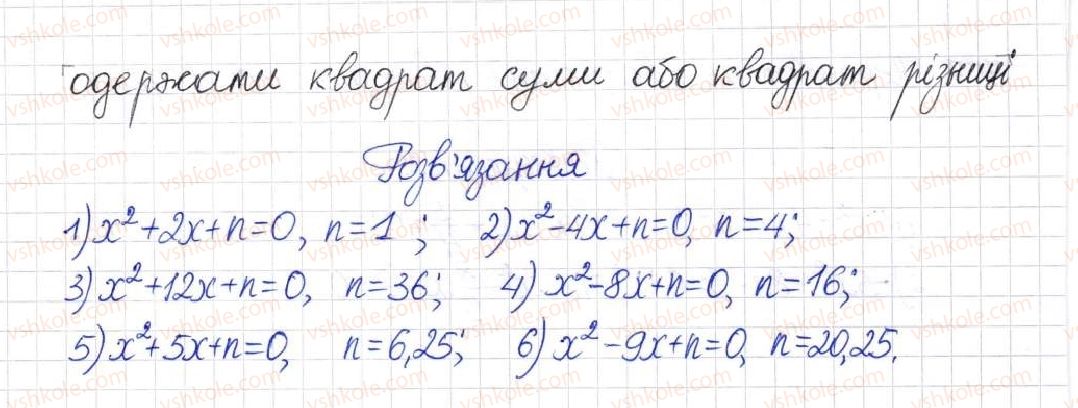 одержати квадрат суми або квадрат різниці
Розв'язання
1) x²+2x+n=0, n=1; 2) x²-4x+n=0, n=4;
3) x²+12x+n=0, n=36; 4) x²-8x+n=0, n=16;
5) x²+5x+n=0, n=6,25; 6) x²-9x+n=0, n=20,25.